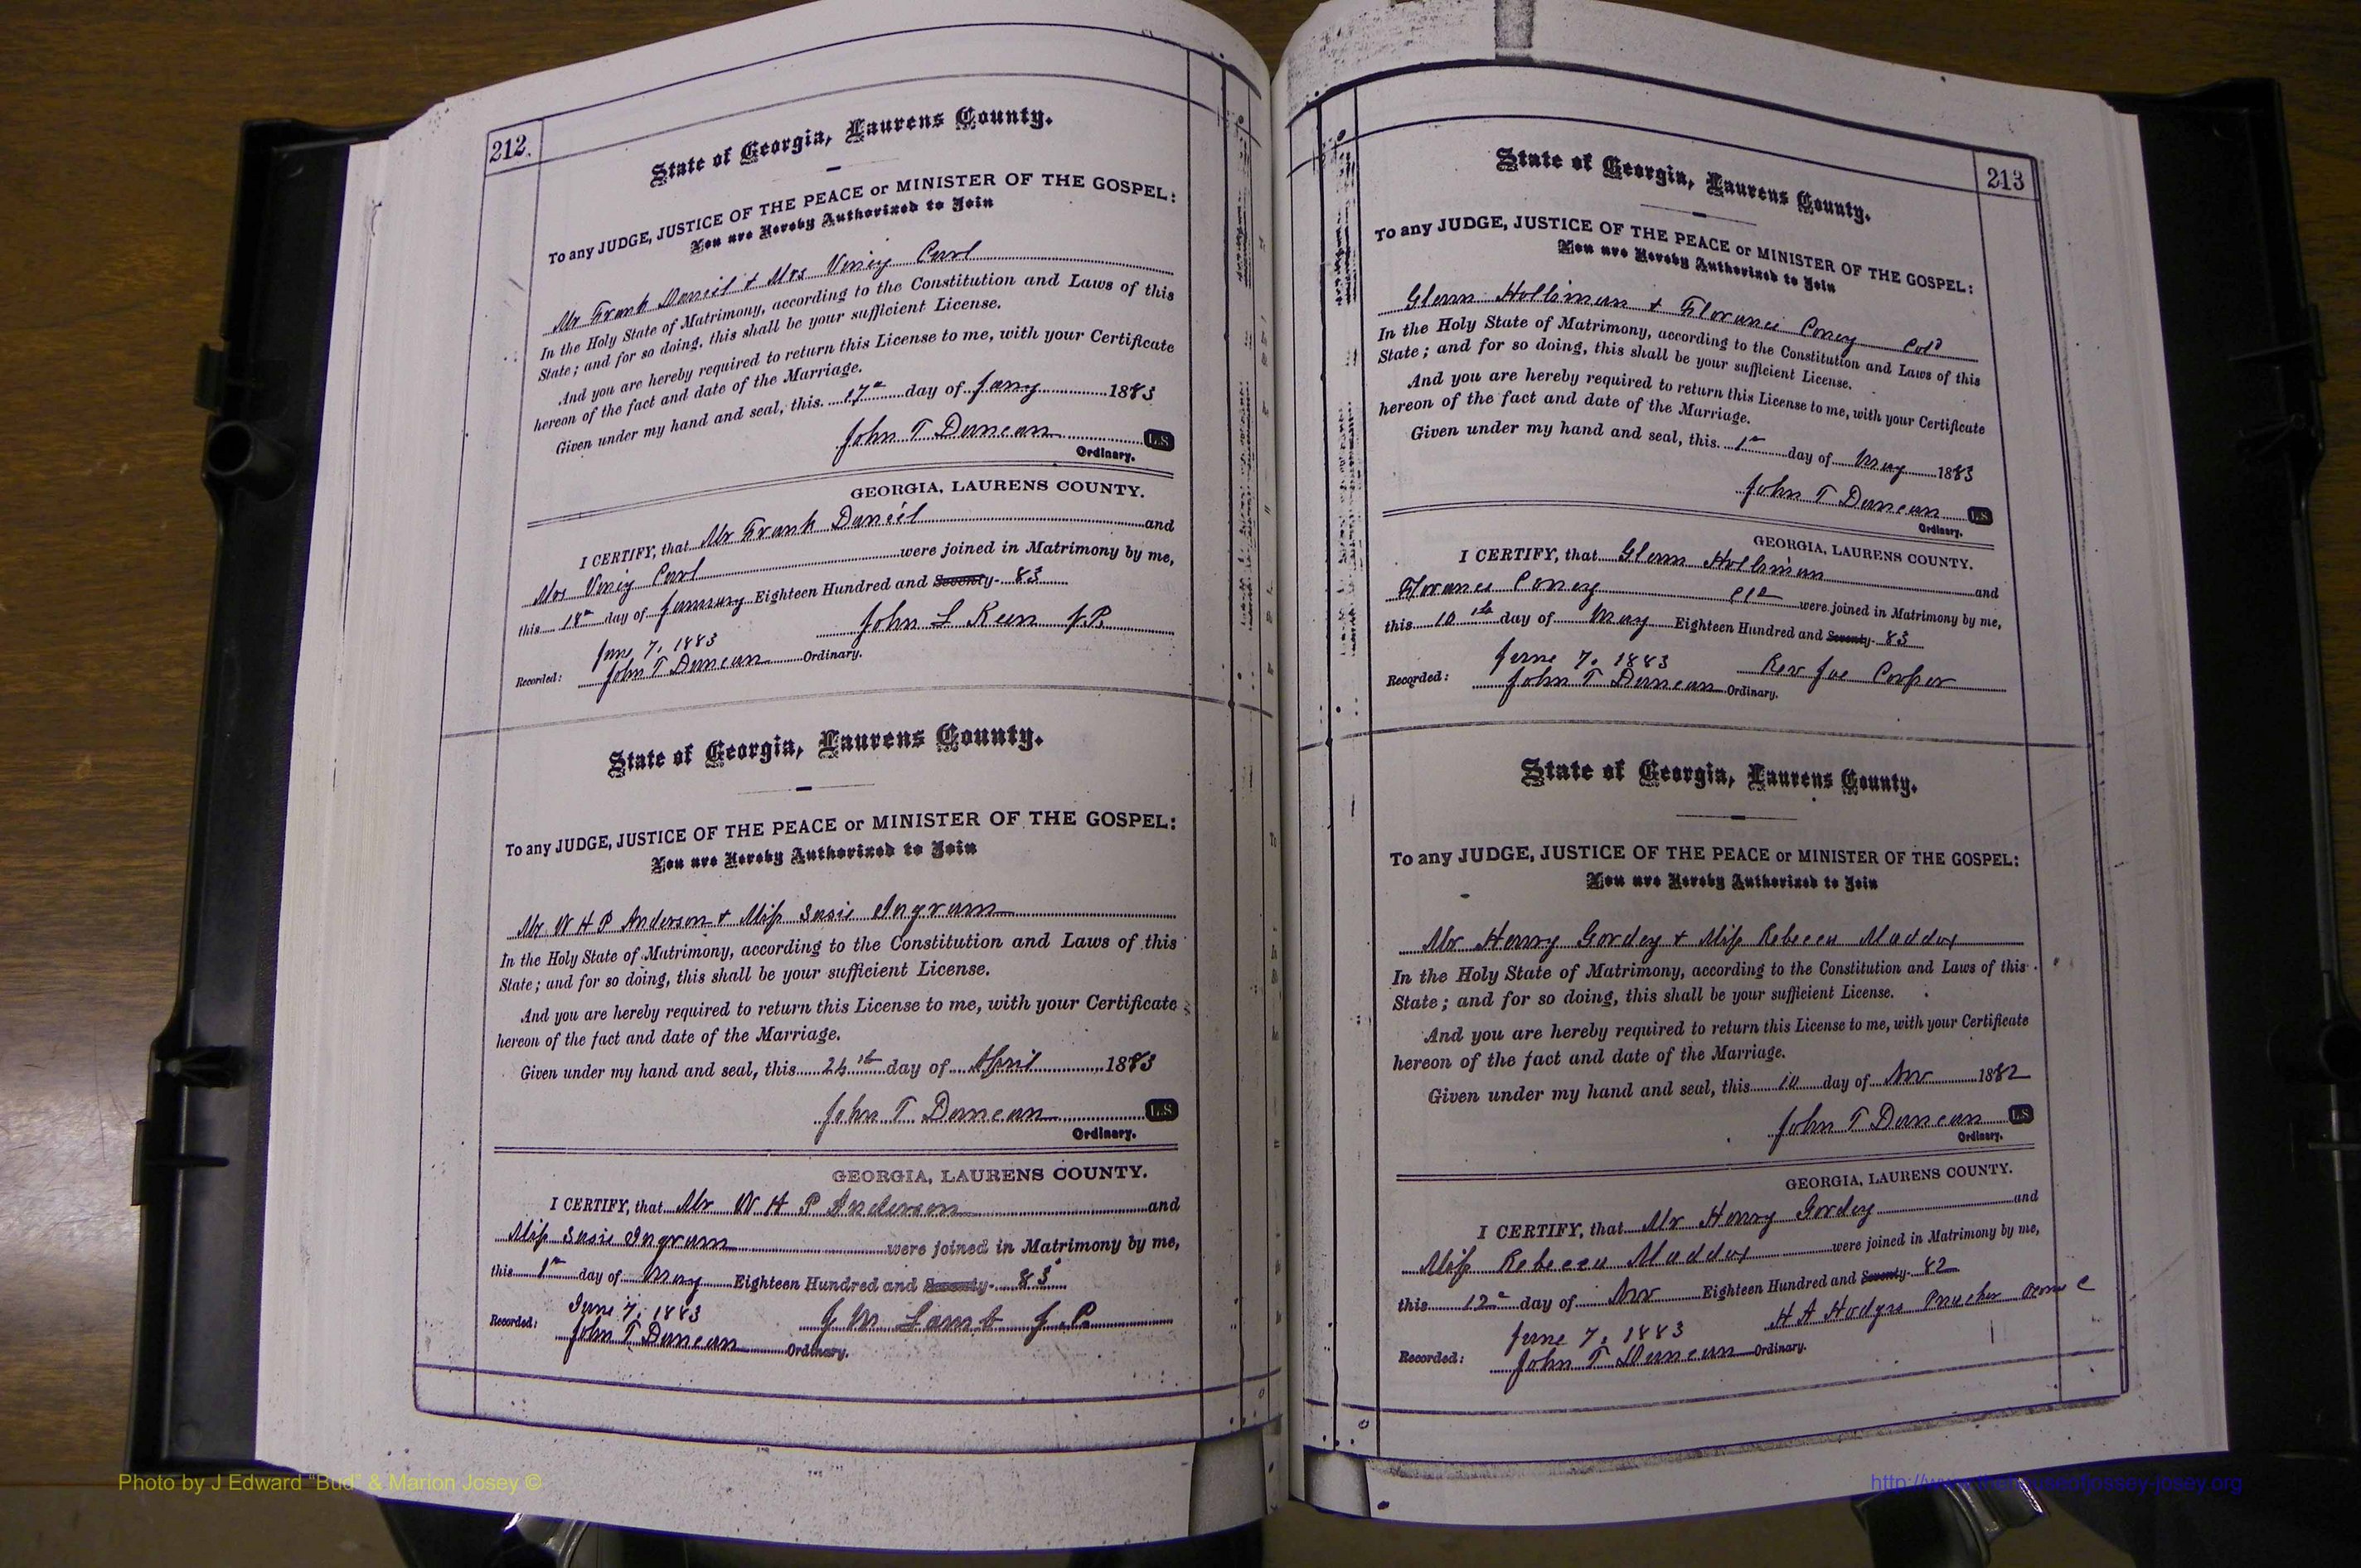 212.
State of Georgia, Laurens County.
To any JUDGE, JUSTICE OF THE PEACE or MINISTER OF THE GOSPEL:
You are Hereby Authorized to Join
Mr Frank Daniel & Mrs Viney Carl
In the Holy State of Matrimony, according to the Constitution and Laws of this
State; and for so doing, this shall be your sufficient License.
And you are hereby required to return this License to me, with your Certificate
hereon of the fact and date of the Marriage.
Given under my hand and seal, this 17th day of Jany 1883
John T Duncan L.S.
Ordinary.
GEORGIA, LAURENS COUNTY.
I CERTIFY, that Mr Frank Daniel and
Mrs Viney Carl were joined in Matrimony by me,
this 18th day of January Eighteen Hundred and Seventy- 83
John L Keen J.P.
June 7, 1883
Recorded: John T Duncan Ordinary.
State of Georgia, Laurens County.
To any JUDGE, JUSTICE OF THE PEACE or MINISTER OF THE GOSPEL:
You are Hereby Authorized to Join
Mr W H P Anderson & Miss Susie Ingram
In the Holy State of Matrimony, according to the Constitution and Laws of this
State; and for so doing, this shall be your sufficient License.
And you are hereby required to return this License to me, with your Certificate
hereon of the fact and date of the Marriage.
Given under my hand and seal, this 24th day of April 1883
John T Duncan L.S.
Ordinary.
GEORGIA, LAURENS COUNTY.
I CERTIFY, that Mr W H P Anderson and
Miss Susie Ingram were joined in Matrimony by me,
this 1st day of May Eighteen Hundred and Seventy- 83
June 7, 1883 J M Lamb J.P.
Recorded: John T Duncan Ordinary.
213
State of Georgia, Laurens County.
To any JUDGE, JUSTICE OF THE PEACE or MINISTER OF THE GOSPEL:
You are Hereby Authorized to Join
Glenn Holliman & Florance Coney Cold
In the Holy State of Matrimony, according to the Constitution and Laws of this
State; and for so doing, this shall be your sufficient License.
And you are hereby required to return this License to me, with your Certificate
hereon of the fact and date of the Marriage.
Given under my hand and seal, this 1st day of May 1883
John T Duncan L.S.
Ordinary.
GEORGIA, LAURENS COUNTY.
I CERTIFY, that Glenn Holliman and
Florance Coney were joined in Matrimony by me,
this 10th day of May Eighteen Hundred and Seventy- 83
June 7, 1883 Rev Joe Cooper
Recorded: John T Duncan Ordinary.
State of Georgia, Laurens County.
To any JUDGE, JUSTICE OF THE PEACE or MINISTER OF THE GOSPEL:
You are Hereby Authorized to Join
Mr Henry Gordey & Miss Rebecca Maddox
In the Holy State of Matrimony, according to the Constitution and Laws of this
State; and for so doing, this shall be your sufficient License.
And you are hereby required to return this License to me, with your Certificate
hereon of the fact and date of the Marriage.
Given under my hand and seal, this 10 day of Nov 1882
John T Duncan L.S.
Ordinary.
GEORGIA, LAURENS COUNTY.
I CERTIFY, that Mr Henry Gordey and
Miss Rebecca Maddox were joined in Matrimony by me,
this 12th day of Nov Eighteen Hundred and Seventy- 82
H A Hodges
June 7, 1883
Recorded: John T Duncan Ordinary.
Photo by J Edward "Bud" & Marion Josey ©
http://www.thehouseofjossey-josey.org